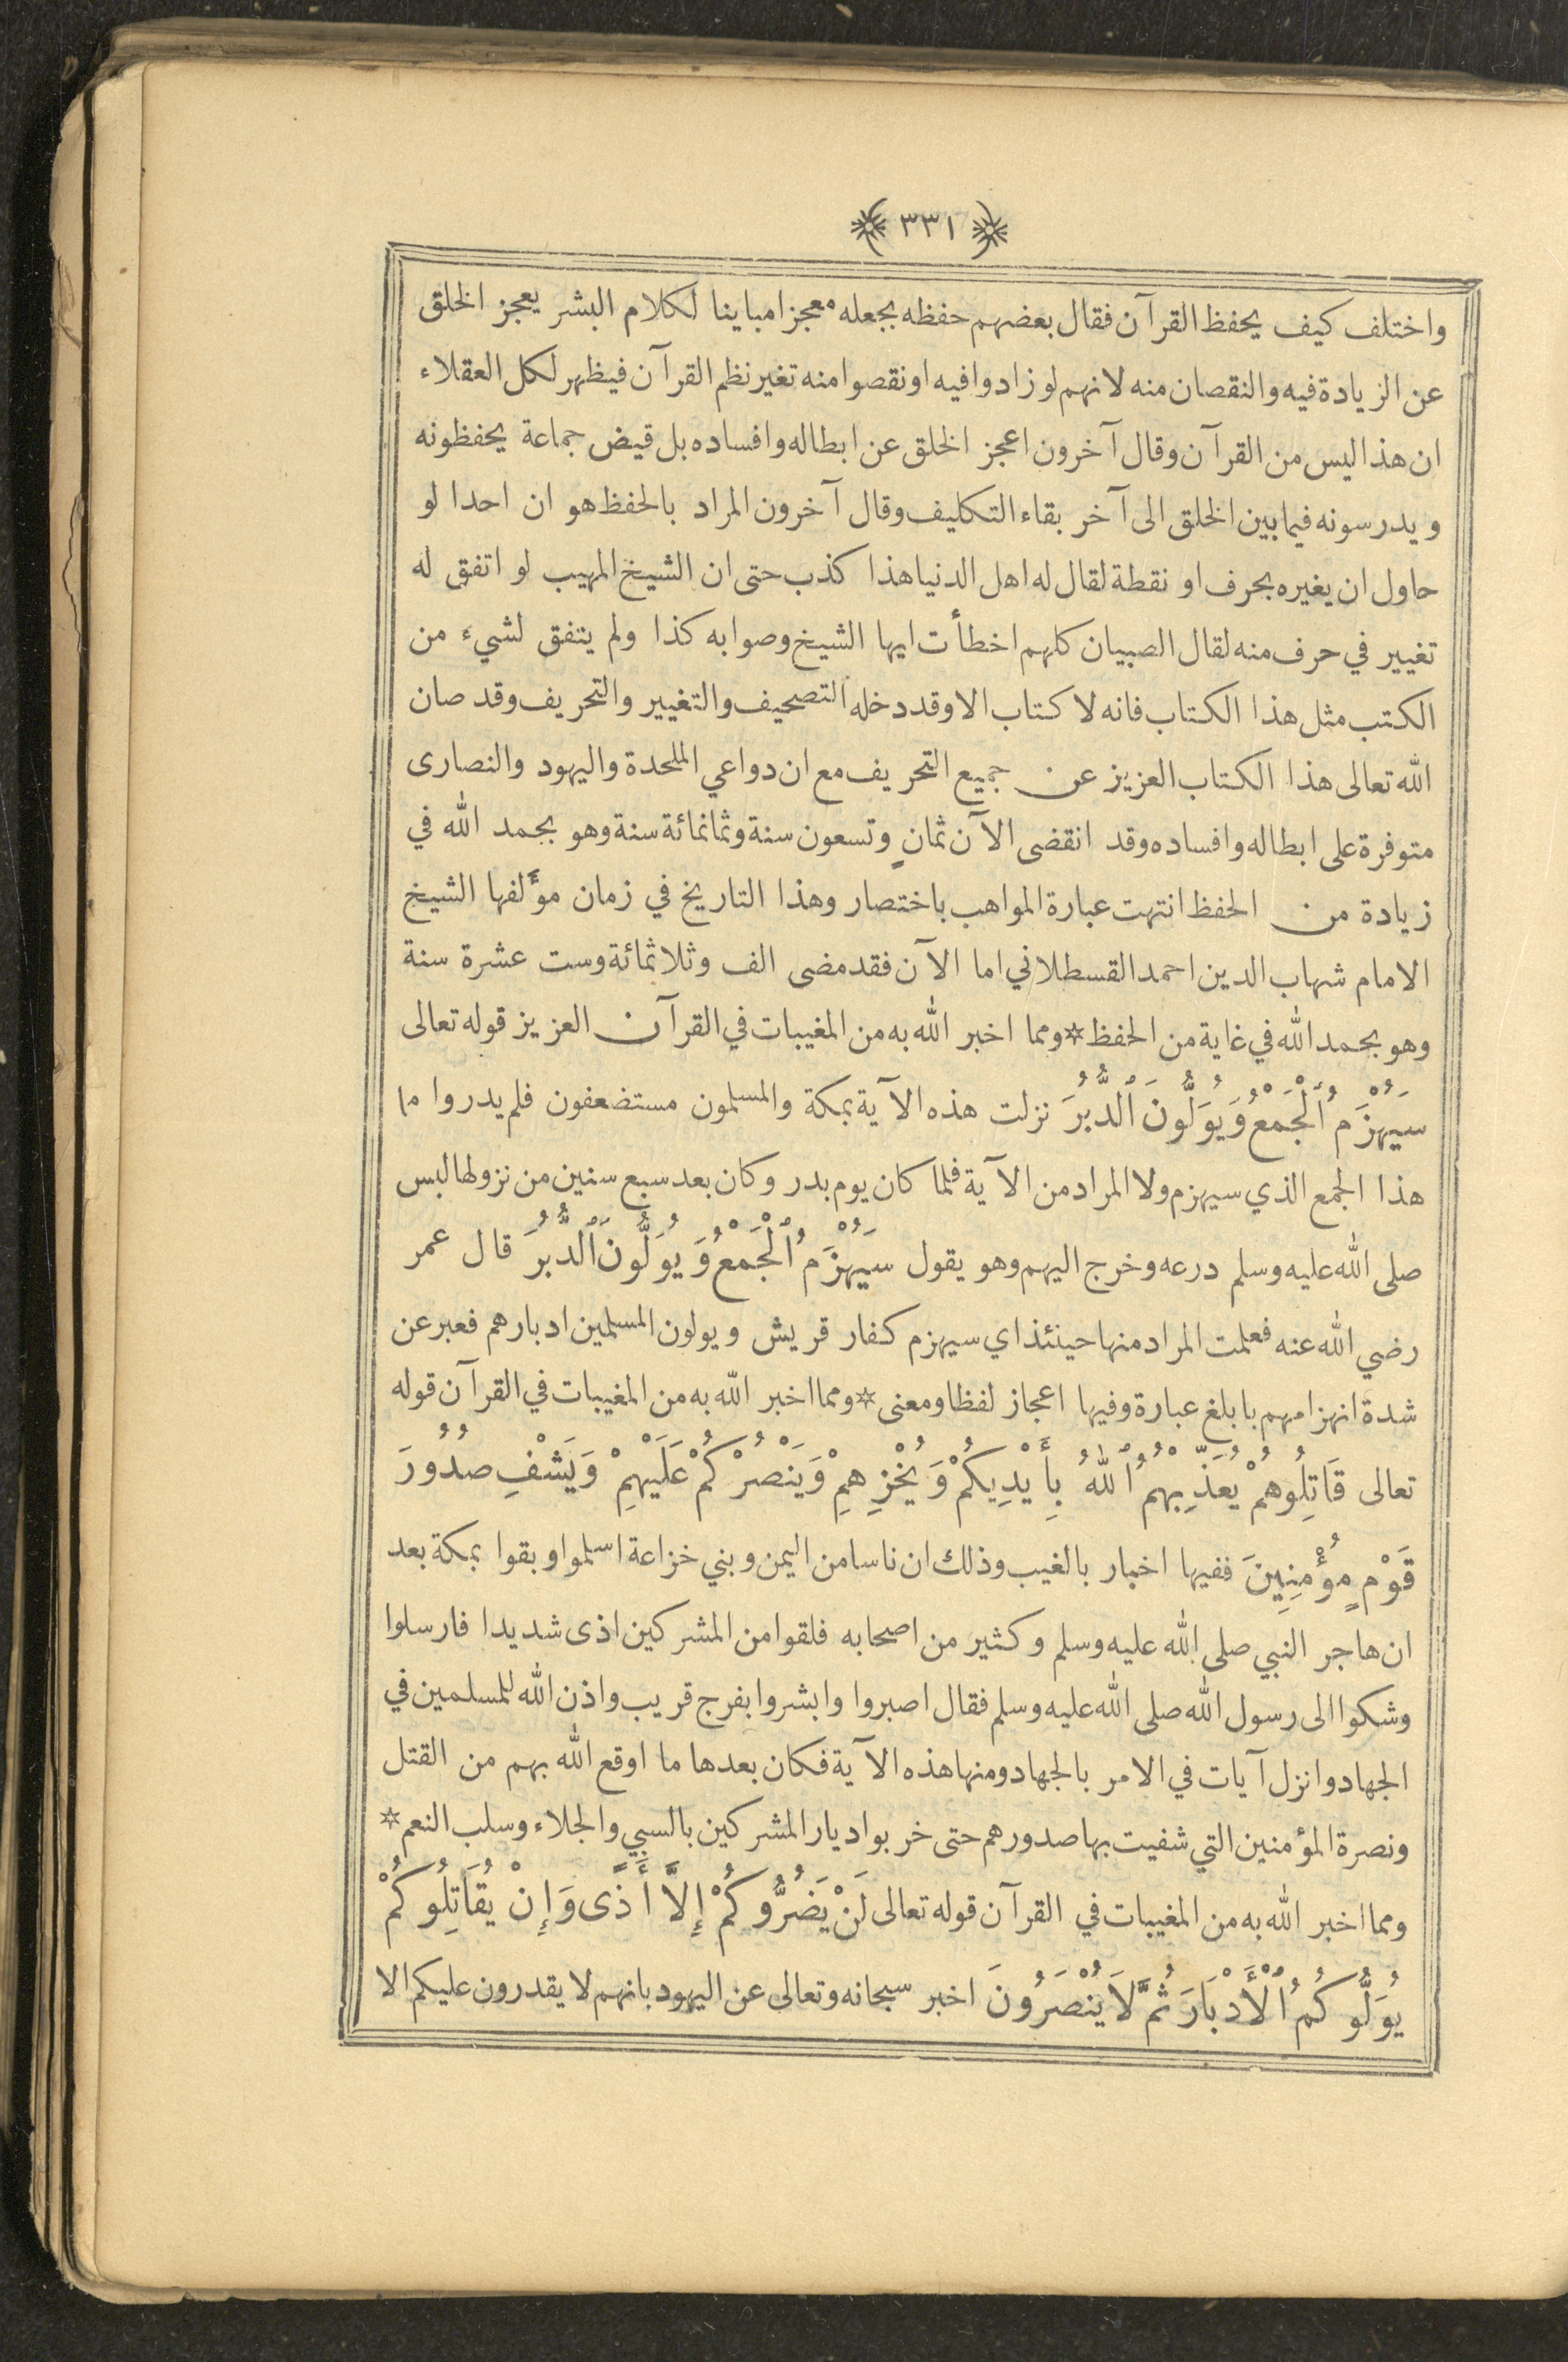 ﴿ ٣٣١ ﴾
واختلف كيف يحفظ القرآن فقال بعضهم حفظه بجعله معجزا مباينا لكلام البشر يعجز الخلق
عن الزيادة فيه والنقصان منه لانهم لو زادوا فيه او نقصوا منه تغير نظم القرآن فيظهر لكل العقلاء
ان هذا ليس من القرآن وقال آخرون اعجز الخلق عن ابطاله وافساده بل قيض جماعة يحفظونه
ويدرسونه فيما بين الخلق الى آخر بقاء التكليف وقال آخرون المراد بالحفظ هو ان احدا لو
حاول ان يغيره بحرف او نقطة لقال له اهل الدنيا هذا كذب حتى ان الشيخ المهيب لو اتفق له
تغيير في حرف منه لقال الصبيان كلهم اخطأت ايها الشيخ وصوابه كذا ولم يتفق لشيء من
الكتب مثل هذا الكتاب فانه لا كتاب الا وقد دخله التصحيف والتغيير والتحريف وقد صان
الله تعالى هذا الكتاب العزيز عن جميع التحريف مع ان دواعي الملحدة واليهود والنصارى
متوفرة على ابطاله وافساده وقد انقضى الآن ثمانٍ وتسعون سنة وثمانمائة سنة وهو بحمد الله في
زيادة من الحفظ انتهت عبارة المواهب باختصار وهذا التاريخ في زمان مؤَلفها الشيخ
الامام شهاب الدين احمد القسطلاني اما الآن فقد مضى الف وثلاثمائة وست عشرة سنة
وهو بحمد الله في غاية من الحفظ * ومما اخبر الله به من المغيبات في القرآن العزيز قوله تعالى
سَيُهْزَمُ ٱلْجَمْعُ وَيُوَلُّونَ ٱلدُّبُرَ نزلت هذه الآية بمكة والمسلمون مستضعفون فلم يدروا ما
هذا الجمع الذي سيهزم ولا المراد من الآية فلما كان يوم بدر وكان بعد سبع سنين من نزولها لبس
صلى الله عليه وسلم درعه وخرج اليهم وهو يقول سَيُهْزَمُ ٱلْجَمْعُ وَيُوَلُّونَ ٱلدُّبُرَ قال عمر
رضي الله عنه فعلمت المراد منها حينئذ اي سيهزم كفار قريش ويولون المسلمين ادبارهم فعبر عن
شدة انهزامهم بابلغ عبارة وفيها اعجاز لفظا ومعنى * ومما اخبر الله به من المغيبات في القرآن قوله
تعالى قَاتِلُوهُمْ يُعَذِّبْهُمُ ٱللهُ بِأَيْدِيكُمْ وَيُخْزِهِمْ وَيَنْصُرْكُمْ عَلَيْهِمْ وَيَشْفِ صُدُورَ
قَوْمٍ مُؤْمِنِينَ ففيها اخبار بالغيب وذلك ان ناسا من اليمن وبني خزاعة اسلموا وبقوا بمكة بعد
ان هاجر النبي صلى الله عليه وسلم وكثير من اصحابه فلقوا من المشركين اذى شديدا فارسلوا
وشكوا الى رسول الله صلى الله عليه وسلم فقال اصبروا وابشروا بفرج قريب واذن الله للمسلمين في
الجهاد وانزل آيات في الامر بالجهاد ومنها هذه الآية فكان بعدها ما اوقع الله بهم من القتل
ونصرة المؤمنين التي شفيت بها صدورهم حتى خربوا ديار المشركين بالسبي والجلاء وسلب النعم *
ومما اخبر الله به من المغيبات في القرآن قوله تعالى لَنْ يَضُرُّوكُمْ إِلاَّ أَذًى وَإِنْ يُقَاتِلُوكُمْ
يُوَلُّوكُمُ ٱلْأَدْبَارَ ثُمَّ لاَ يُنْصَرُونَ اخبر سبحانه وتعالى عن اليهود بانهم لا يقدرون عليكم الا